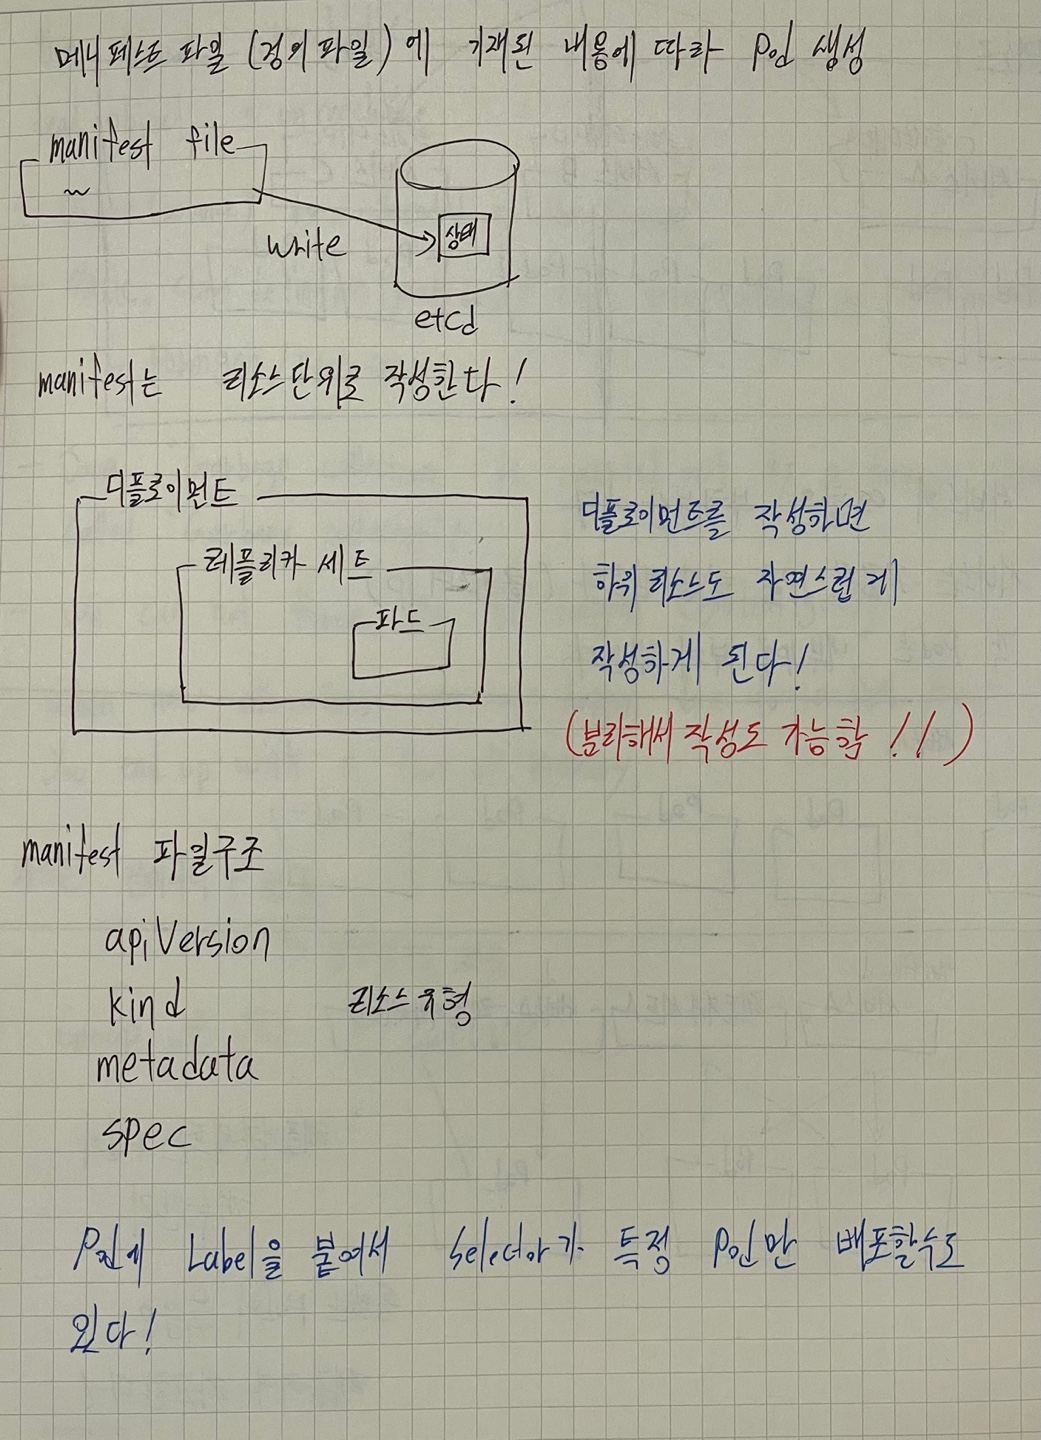 메니페스트 파일 (정의 파일) 에 기재된 내용에 따라 Pod 생성
manifest file
~
write
상태
etcd
manifest는 리소스단위로 작성한다!
디플로이먼트
레플리카 세트
파드
디플로이먼트를 작성하면
하위 리소스도 자연스럽게
작성하게 된다!
(분리해서 작성도 가능함!!)
manifest 파일구조
apiVersion
kind 리소스유형
metadata
spec
Pod에 Label을 붙여서 Selector가 특정 Pod만 배포할수도
있다!